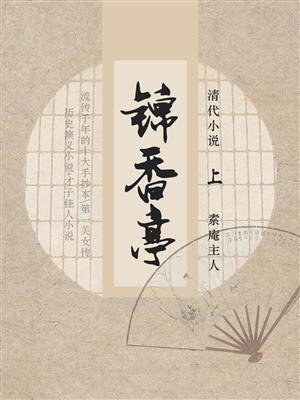 锦香亭
清代小说
上
素庵主人
流传千年的十大手抄本/第一美女传
历史演义小说/才子佳人小说